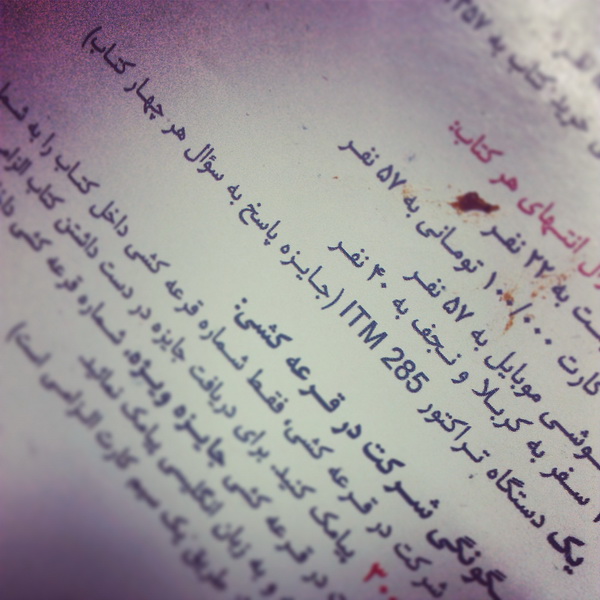 خرید کتاب به ۲۵۷
ال انتهای هر کتاب:
به ۲۲ نفر
کارت ۱۰۰/۰۰۰ تومانی به ۵۷ نفر
گوشی موبایل به ۵۷ نفر
سفر به کربلا و نجف به ۴۰ نفر
یک دستگاه تراکتور ITM 285 (جایزه پاسخ به سؤال هر چهار کتاب)
چگونگی شرکت در قرعه کشی:
شرکت در قرعه کشی، فقط شماره قرعه کشی داخل کتاب را به شما
پیامک کنید. برای دریافت جایزه در دست داشتن کتاب الزامی
در قرعه کشی جایزه ویژه، شماره قرعه کشی
و به زبان انگلیسی پیامک نمائید